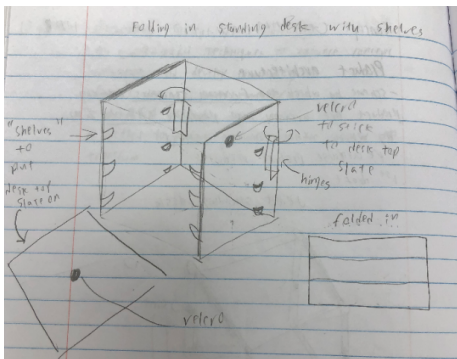 Folding in standing desk with shelves
"shelves"
to
put
desk top
slate on
velcro
to stick
to desk top
slate
hinges
folded in
velcro